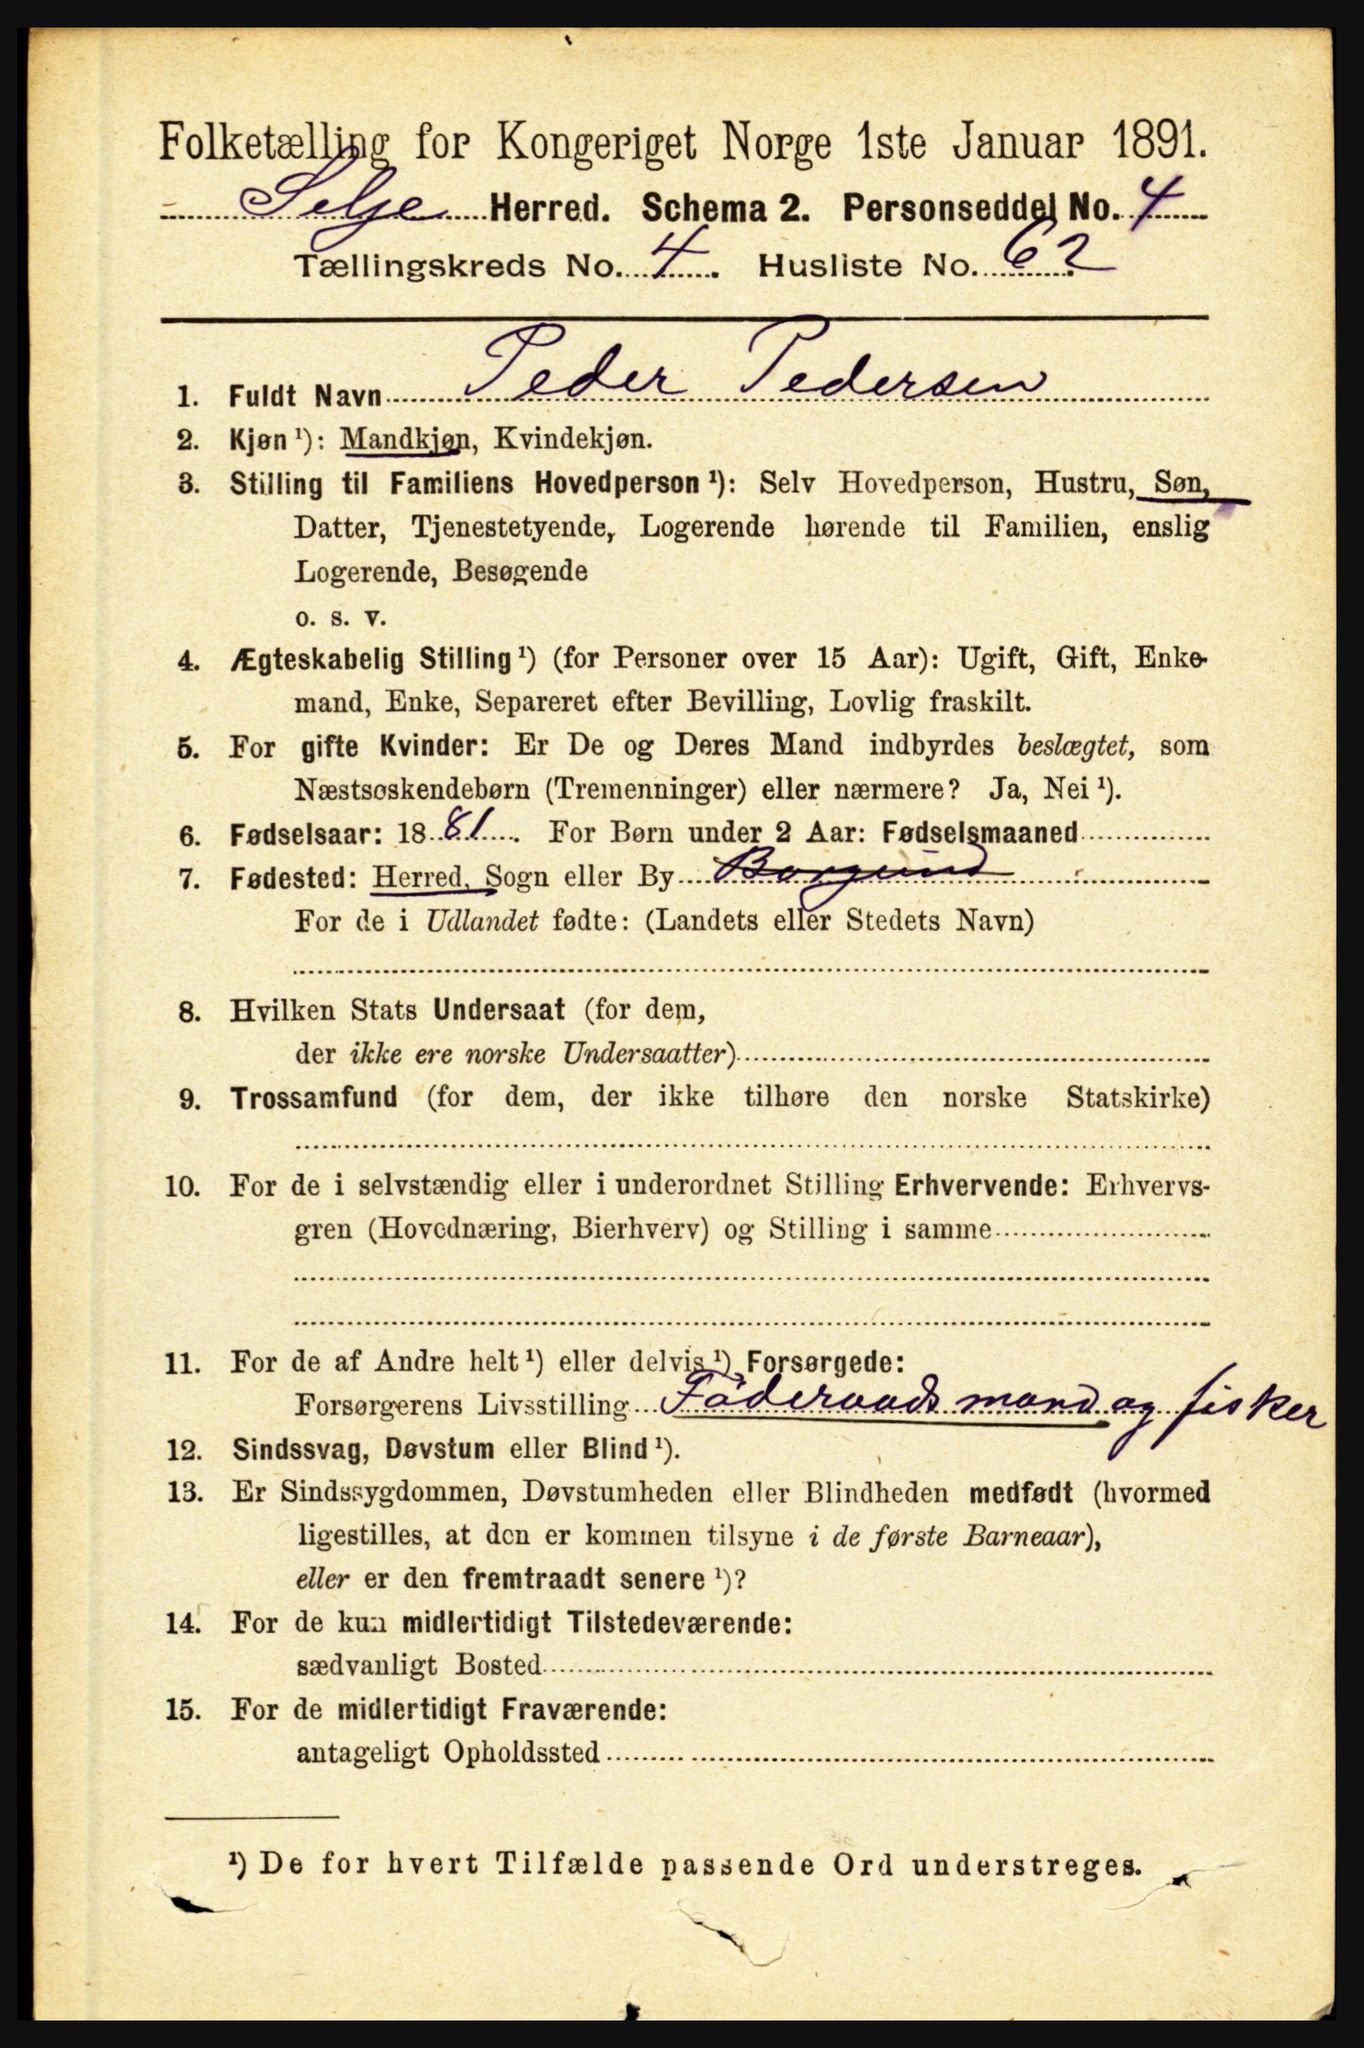 Folketælling for Kongeriget Norge 1ste Januar 1891.
Selje Herred. Schema 2. Personseddel No. 4
Tællingskreds No. 4. Husliste No. 62.
1. Fuldt Navn Peder Pedersen
2. Kjøn¹): Mandkjøn, Kvindekjøn.
3. Stilling til Familiens Hovedperson¹): Selv Hovedperson, Hustru, Søn,
Datter, Tjenestetyende, Logerende hørende til Familien, enslig
Logerende, Besøgende
o. s. v.
4. Ægteskabelig Stilling¹) (for Personer over 15 Aar): Ugift, Gift, Enke-
mand, Enke, Separeret efter Bevilling, Lovlig fraskilt.
5. For gifte Kvinder: Er De og Deres Mand indbyrdes beslægtet, som
Næstsøskendebørn (Tremenninger) eller nærmere? Ja, Nei¹).
6. Fødselsaar: 1881. For Børn under 2 Aar: Fødselsmaaned
7. Fødested: Herred, Sogn eller By Borgund
For de i Udlandet fødte: (Landets eller Stedets Navn)
8. Hvilken Stats Undersaat (for dem,
der ikke ere norske Undersaatter)
9. Trossamfund (for dem, der ikke tilhøre den norske Statskirke)
10. For de i selvstændig eller i underordnet Stilling Erhvervende: Erhvervs-
gren (Hovednæring, Bierhverv) og Stilling i samme
11. For de af Andre helt¹) eller delvis¹) Forsørgede:
Forsørgerens Livsstilling Föderaadsmand og fisker
12. Sindssvag, Døvstum eller Blind¹).
13. Er Sindssygdommen, Døvstumheden eller Blindheden medfødt (hvormed
ligestilles, at den er kommen tilsyne i de første Barneaar),
eller er den fremtraadt senere¹)?
14. For de kun midlertidigt Tilstedeværende:
sædvanligt Bosted
15. For de midlertidigt Fraværende:
antageligt Opholdssted
¹) De for hvert Tilfælde passende Ord understreges.